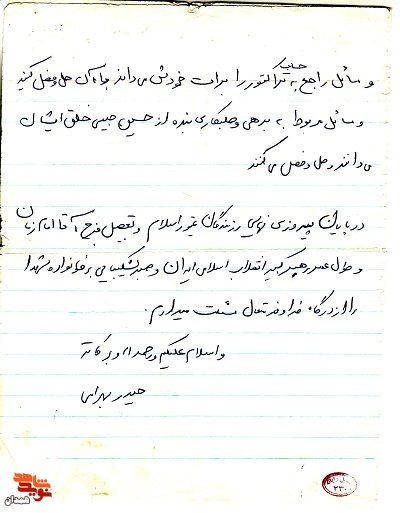 و مسائل راجع به حساب تراکتور را برات خودش می‌داند با آن حل و فصل کنید
و مسائل مربوط به بدهی و طلبکاری بنده از حسین حبیبی خلق ایشان
می‌دانند و حل و فصل می‌کنند
در پایان پیروزی نهایی رزمندگان غیور اسلام و تعجیل فرج آقا امام زمان
و طول عمر رهبر کبیر انقلاب اسلامی ایران و صبر و شکیبایی بر خانواده شهدا
را از درگاه خداوند متعال مسئلت میدارم.
والسلام علیکم و رحمة الله و برکاته
حیدر بهرامی
نوید شاهد
همدان